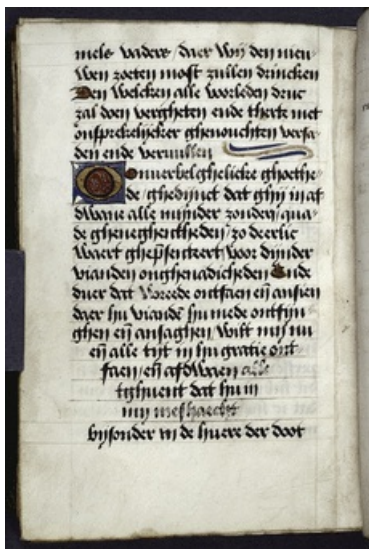 mels vaders / daer wij den nieu-
wen zoeten most zullen drincken
Den welcken alle voorleden druc
zal doen vergheten ende therte met
onsprekelijcker ghenouchten versa-
den ende vervullen
Onuerbelghelicke ghoethe-
de / ghedijnct dat ghij in af
dwane alle mijnder zonden / qua-
de gheneghentheden / zo deerlic
waert ghepresenteert / voor dijnder
vianden onghenadicheden Ende
duer dat wreede ontfaen eñ ansien
daer hu viandē hu mede ontfijn-
ghen eñ ansaghen / wilt mij nu
eñ alle tijt in hu gratie ont
faen / eñ afdwaen alle
tghuent dat hu in
mij meshaecht
bijsonder in de huere der doot